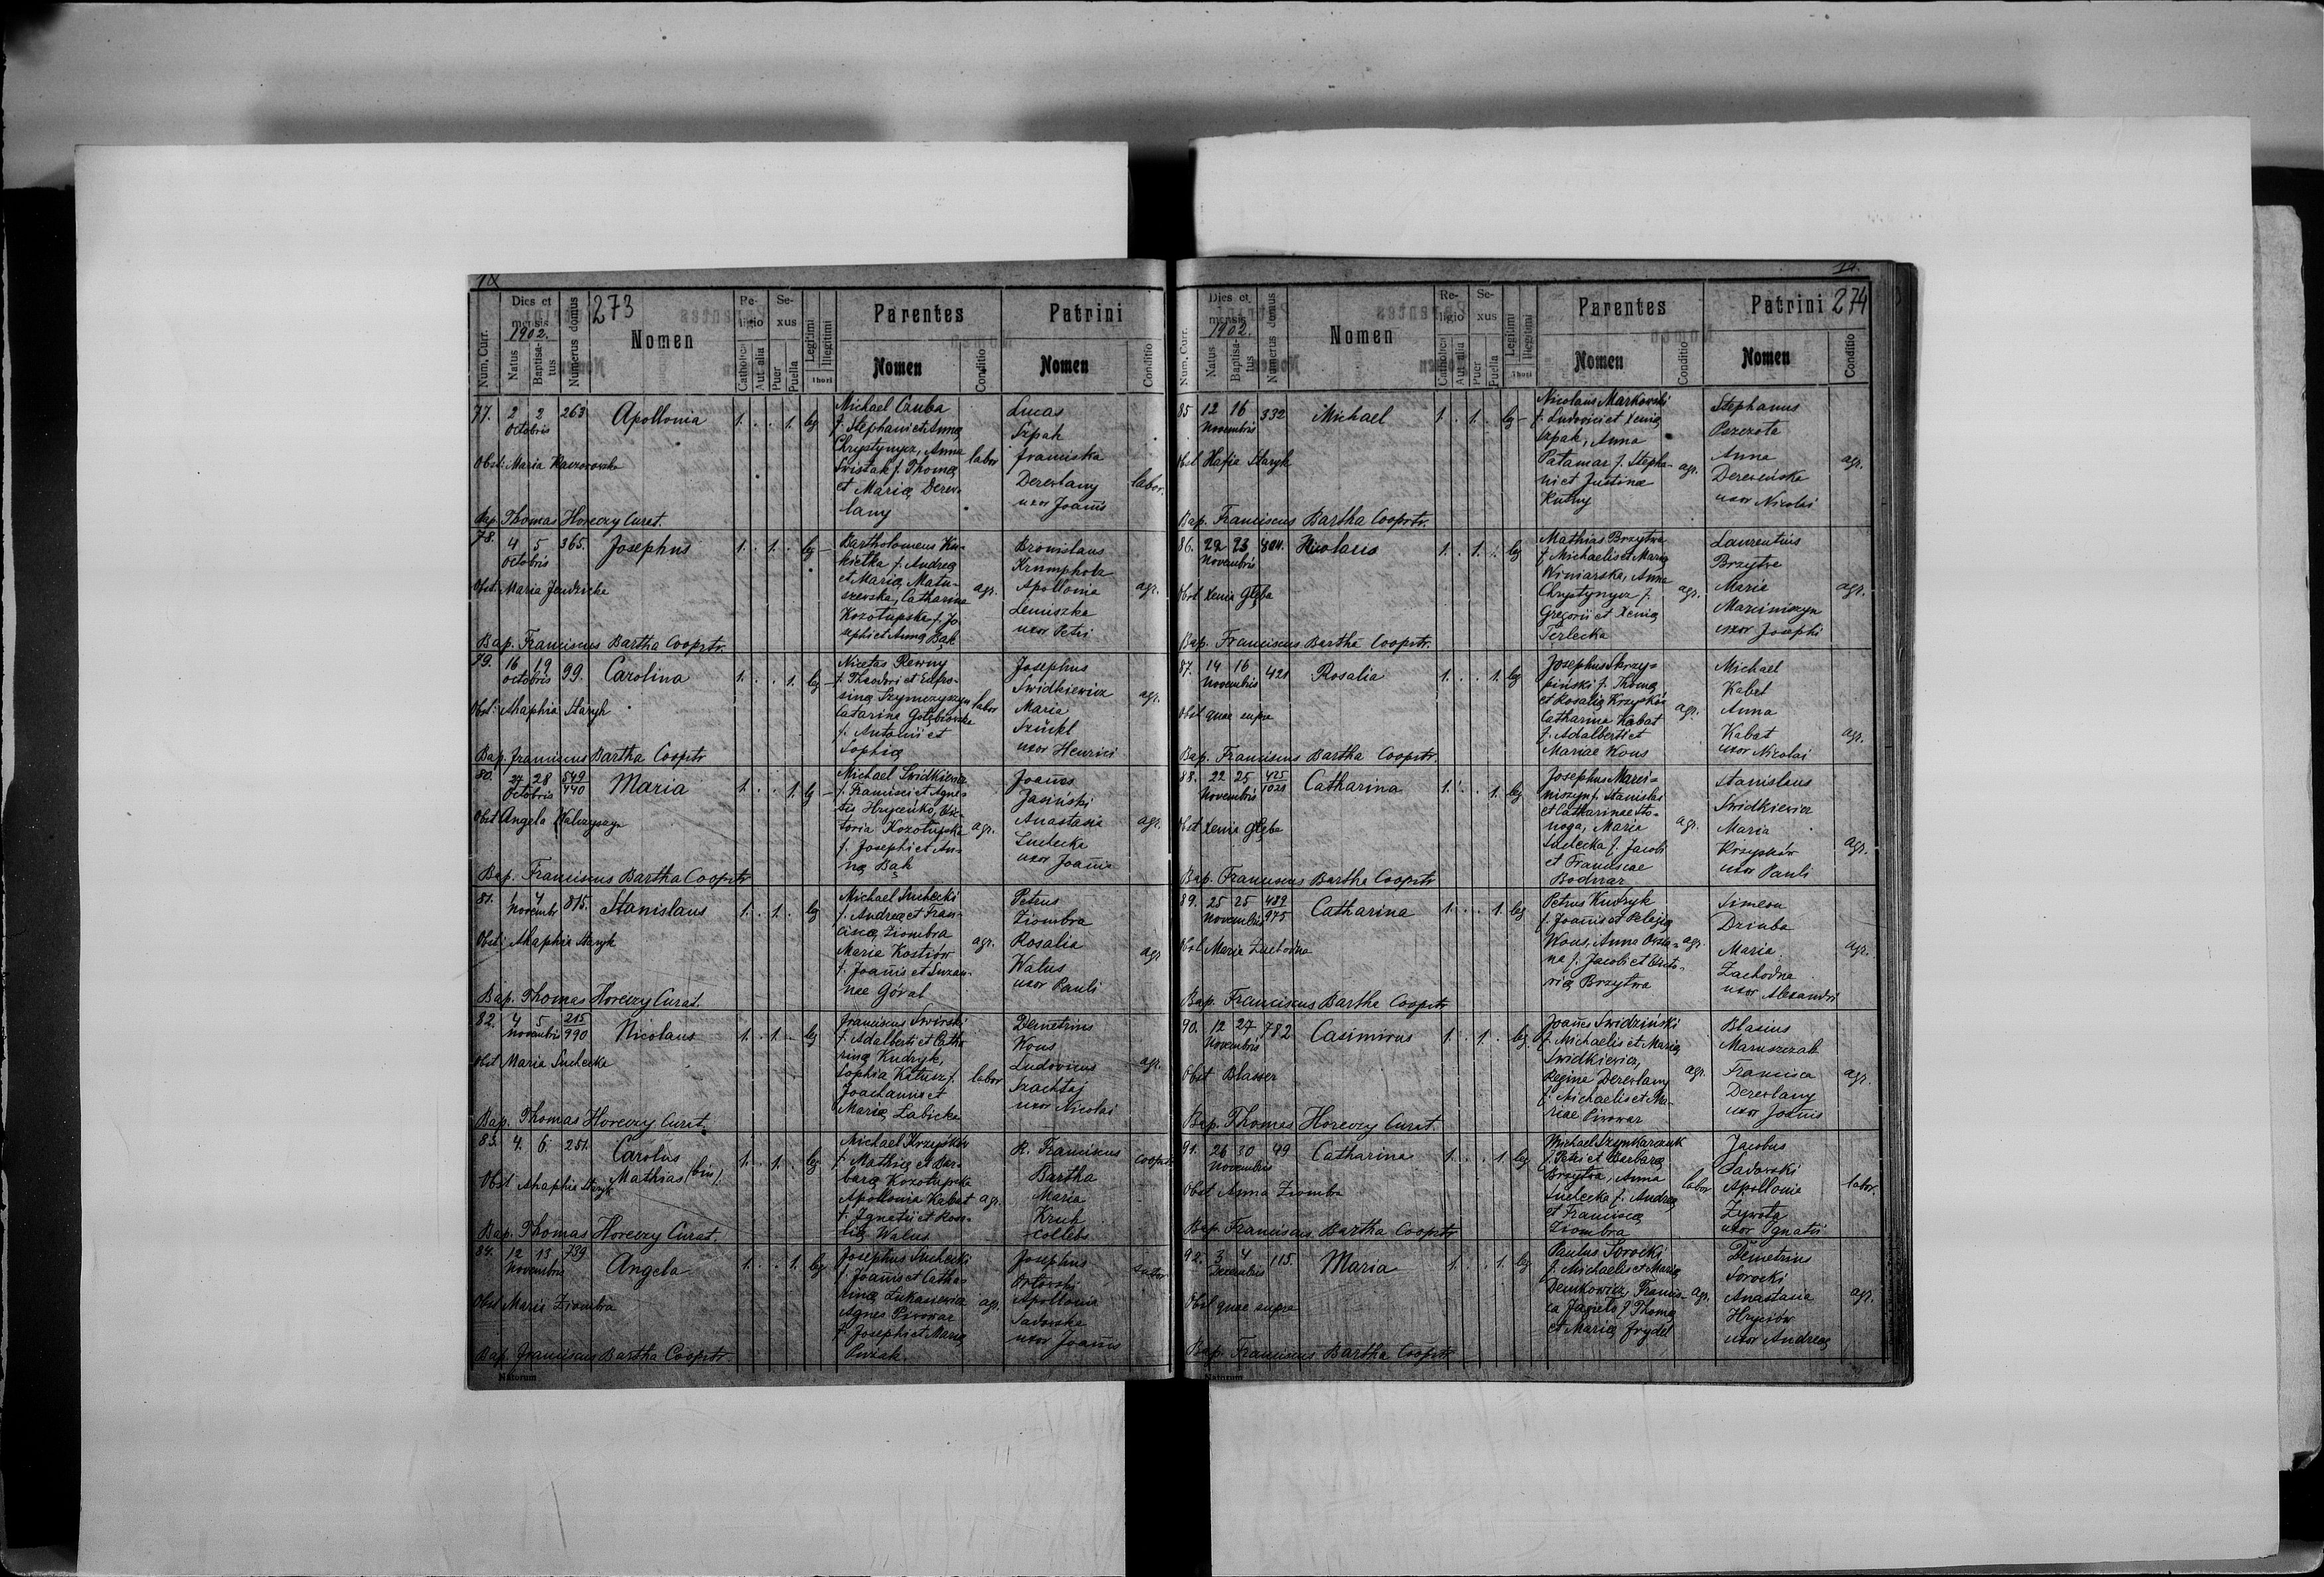 18
273
Num. Curr.
Dies et mensis
1902.
Natus
Baptisatus
Numerus domus
Nomen
Religio
Catholica
Aut alia
Sexus
Puer
Puella
Legitimi
Illegitimi
Thori
Parentes
Nomen
Conditio
Patrini
Nomen
Conditio
77. 2 2 263 Apollonia 1. . . 1. leg
Octobris
Michael Czuba
f. Stephani et Anna
Chrystynycz, Anna
Swistak f. Thoma
et Maria Derew-
lany
labor
Lucas
Szpak
Franciska
Derewlany
uxor Joannis
labor.
Obst: Maria Kaczorowska
Bap. Thomas Horeczy Curat.
78. 4 5 365. Josephus 1. . 1. . leg -
Octobris
Bartholomeus Ku-
kietka f. Andrea
et Maria Matu-
szewska, Catharina
Kozołupska f. Jo-
sephi et Anna Bąk
agr.
Bronislaus
Krumpholz
Apollonia
Lemiszka
uxor Petri
agr.
Obst: Maria Jendzicka
Bap. Franciscus Bartha Cooprtr.
79. 16 19 99. Carolina 1. . . 1. leg -
Octobris
Nicetas Rewny
f. Theodori et Eufro-
sina Szymczyszyn
Catarina Gołębiowska
f. Antonii et
Sophia
labor
Josephus
Swidkiewicz
Maria
Szückl
uxor Henrici
agr.
Obst: Ahaphia Staryk
Bap. Franciscus Bartha Cooprtr
80. 27 28 549/440 Maria 1. . . 1. leg -
Octobris
Michael Swidkiewicz
f. Francisci et Agne-
tis Hryceńko, Vic-
toria Kozołupska
f. Josephi et An-
na Bąk
agr.
Joannes
Jasiński
Anastasia
Suchecka
uxor Joannis
agr.
Obst Angela Walczyszyn
Bap. Franciscus Bartha Cooprtr
81. 1 4 815. Stanislaus 1. . 1. . leg
Novembr
Michael Suchecki
f. Andrea et Fran-
cisca Ziombra
Maria Kostiów
f. Joannis et Suzan-
nae Góral
agr.
Petrus
Ziombra
Rosalia
Walus
uxor Pauli
agr
Obst: Ahaphia Staryk
Bap. Thomas Horeczy Curat.
82. 4 5 215/990 Nicolaus 1. . 1. . leg
Novembris
Franciscus Swirski
f. Adalberti et Catha
rina Kudryk,
Sophia Kałusz f.
Joachannis et
Maria Łabicka
labor
Demetrius
Wous
Ludovicus
Szachtaj
uxor Nicolai
agr.
Obst Maria Suchecka
Bap. Thomas Horeczy Curat.
83. 4. 6. 251. Carolus 1. . 1. . leg
Mathias (bin).
Michael Krzyśków
f. Mathia et Bar-
bara Kozołupska
Apollonia Kabat
f. Ignatii et Rosa-
lia Walus
agr.
R. Franciscus
Bartha
Maria
Kruk
coelebs
cooprtr
Obst Ahaphia Staryk
Bap. Thomas Horeczy Curat.
84. 12 13 739 Angela 1. . . 1. leg
Novembris
Josephus Suchecki
f. Joannis et Catha-
rina Łukasiewicz
Agnes Piwowar
f. Josephi et Maria
agr.
Josephus
Orłowski
Apollonia
Sadowska
uxor Joannis
sutor
Obst Maria Ziombra
Bap. Franciscus Bartha Cooprtr.
Natorum
274
Num. Curr.
Dies et mensis
1902.
Natus
Baptisatus
Numerus domus
Nomen
Religio
Catholica
Aut alia
Sexus
Puer
Puella
Legitimi
Illegitimi
Thori
Parentes
Nomen
Conditio
Patrini
Nomen
Conditio
85 12 16 332 Michael 1. . 1. . leg -
Novembris
Nicolaus Markowski
f. Ludovici et Xenia
Szpak, Anna
Patamar f. Stepha-
ni et Justinae
Kutny
agr.
Stephanus
Pszezota
Anna
Dereweńska
uxor Nicolai
agr.
Obst Hafia Staryk
Bap. Franciscus Bartha Cooprtr.
86. 22 23 804. Nicolaus 1. . 1. . leg
Novembris
Mathias Brzytwa
f. Michaelis et Maria
Winiarska, Anna
Chrystynycz f.
Gregorii et Xenia
Terlecka
agr.
Laurentius
Brzytwa
Maria
Marciniszyn
uxor Josephi
agr.
Obst Xenia Głęba
Bap. Franciscus Bartha Cooprtr.
87. 14 16 421 Rosalia 1. . . 1. leg
Novembris
Josephus Skrzy-
piński f. Thoma
et Rosalia Krzyśków
Catharina Kabat
f. Adalberti et
Mariae Kous
agr.
Michael
Kabat
Anna
Kabat
uxor Nicolai
agr.
Obst quae supra
Bap. Franciscus Bartha Cooprtr.
88. 22 25 425/1021 Catharina 1. . . 1. leg
Novembris
Josephus Marci-
niszyn f. Stanislai
et Catharinae Sto-
noga, Maria
Suchecka f. Jacobi
et Franciscae
Bodnar
agr.
Stanislaus
Swidkiewicz
Maria
Krzyśków
uxor Pauli
agr.
Obst Xenia Głęba
Bap. Franciscus Bartha Cooprtr
89. 25 25 489/975 Catharina 1. . . 1. leg
Novembris
Petrus Kudryk
f. Joannis et Pelagia
Wous, Anna
na f. Jacobi et Victo-
ria Brzytwa
agr.
Simeon
Dziuba
Maria
Zachodna
uxor Alexandri
agr.
Obst Maria Zachodna
Bap. Franciscus Bartha Cooprtr
90. 12 27 782 Casimirus 1. . 1. . leg
Novembris
Joannes Swidziński
f. Michaelis et Maria
Swidkiewicz,
Regina Derewlany
f. Michaelis et Ma-
riae Piwowar
agr.
Blasius
Maruszczak
Francisca
Derewlany
uxor Joannis
agr.
Obst Blasser
Bap. Thomas Horeczy Curat.
91. 26 30 49 Catharina 1. . . 1 leg
Novembris
Michael Szymkarczuk
f. Petri et Barbara
Brzytwa, Anna
Suchecka f. Andrea
et Francisca
Ziombra
labor
Jacobus
Sadowski
Apollonia
Zywota
uxor Ignatii
labor.
Obst Anna Ziomba
Bap. Franciscus Bartha Cooprtr
92. 3 4 115. Maria 1. . . 1. leg
Decembris
Paulus Sorocki
f. Michaelis et Maria
Demkowicz, Francis-
ca Jagieło f Thoma
et Maria Frydel
agr.
Demetrius
Sorocki
Anastasia
Hryciów
uxor Andrea
agr.
Obst quae supra
Bap. Franciscus Bartha Cooprtr
Natorum